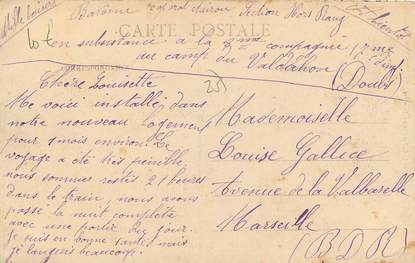 Barème caporal clairon Section Hors Rang
CARTE POSTALE
en subsistance a la 7ème compagnie
au camp du Valdahon
(Doubs)
CORRESPONDANCE
Chère Louisette
Me voici installé, dans
notre nouveau logement
pour 1 mois environ. Le
voyage a été très pénible,
nous sommes restés 21 heures
dans le train, nous avons
passé la nuit complète
avec une partie du jour.
Je suis en bonne santé mais
je languis beaucoup.
25
Mademoiselle
Louise Gallice
Avenue de la Valbarelle
Marseille
(B D R)